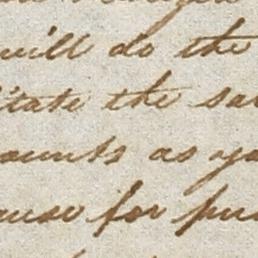 will do the
itate the sa
ounts as yo
ause for pu